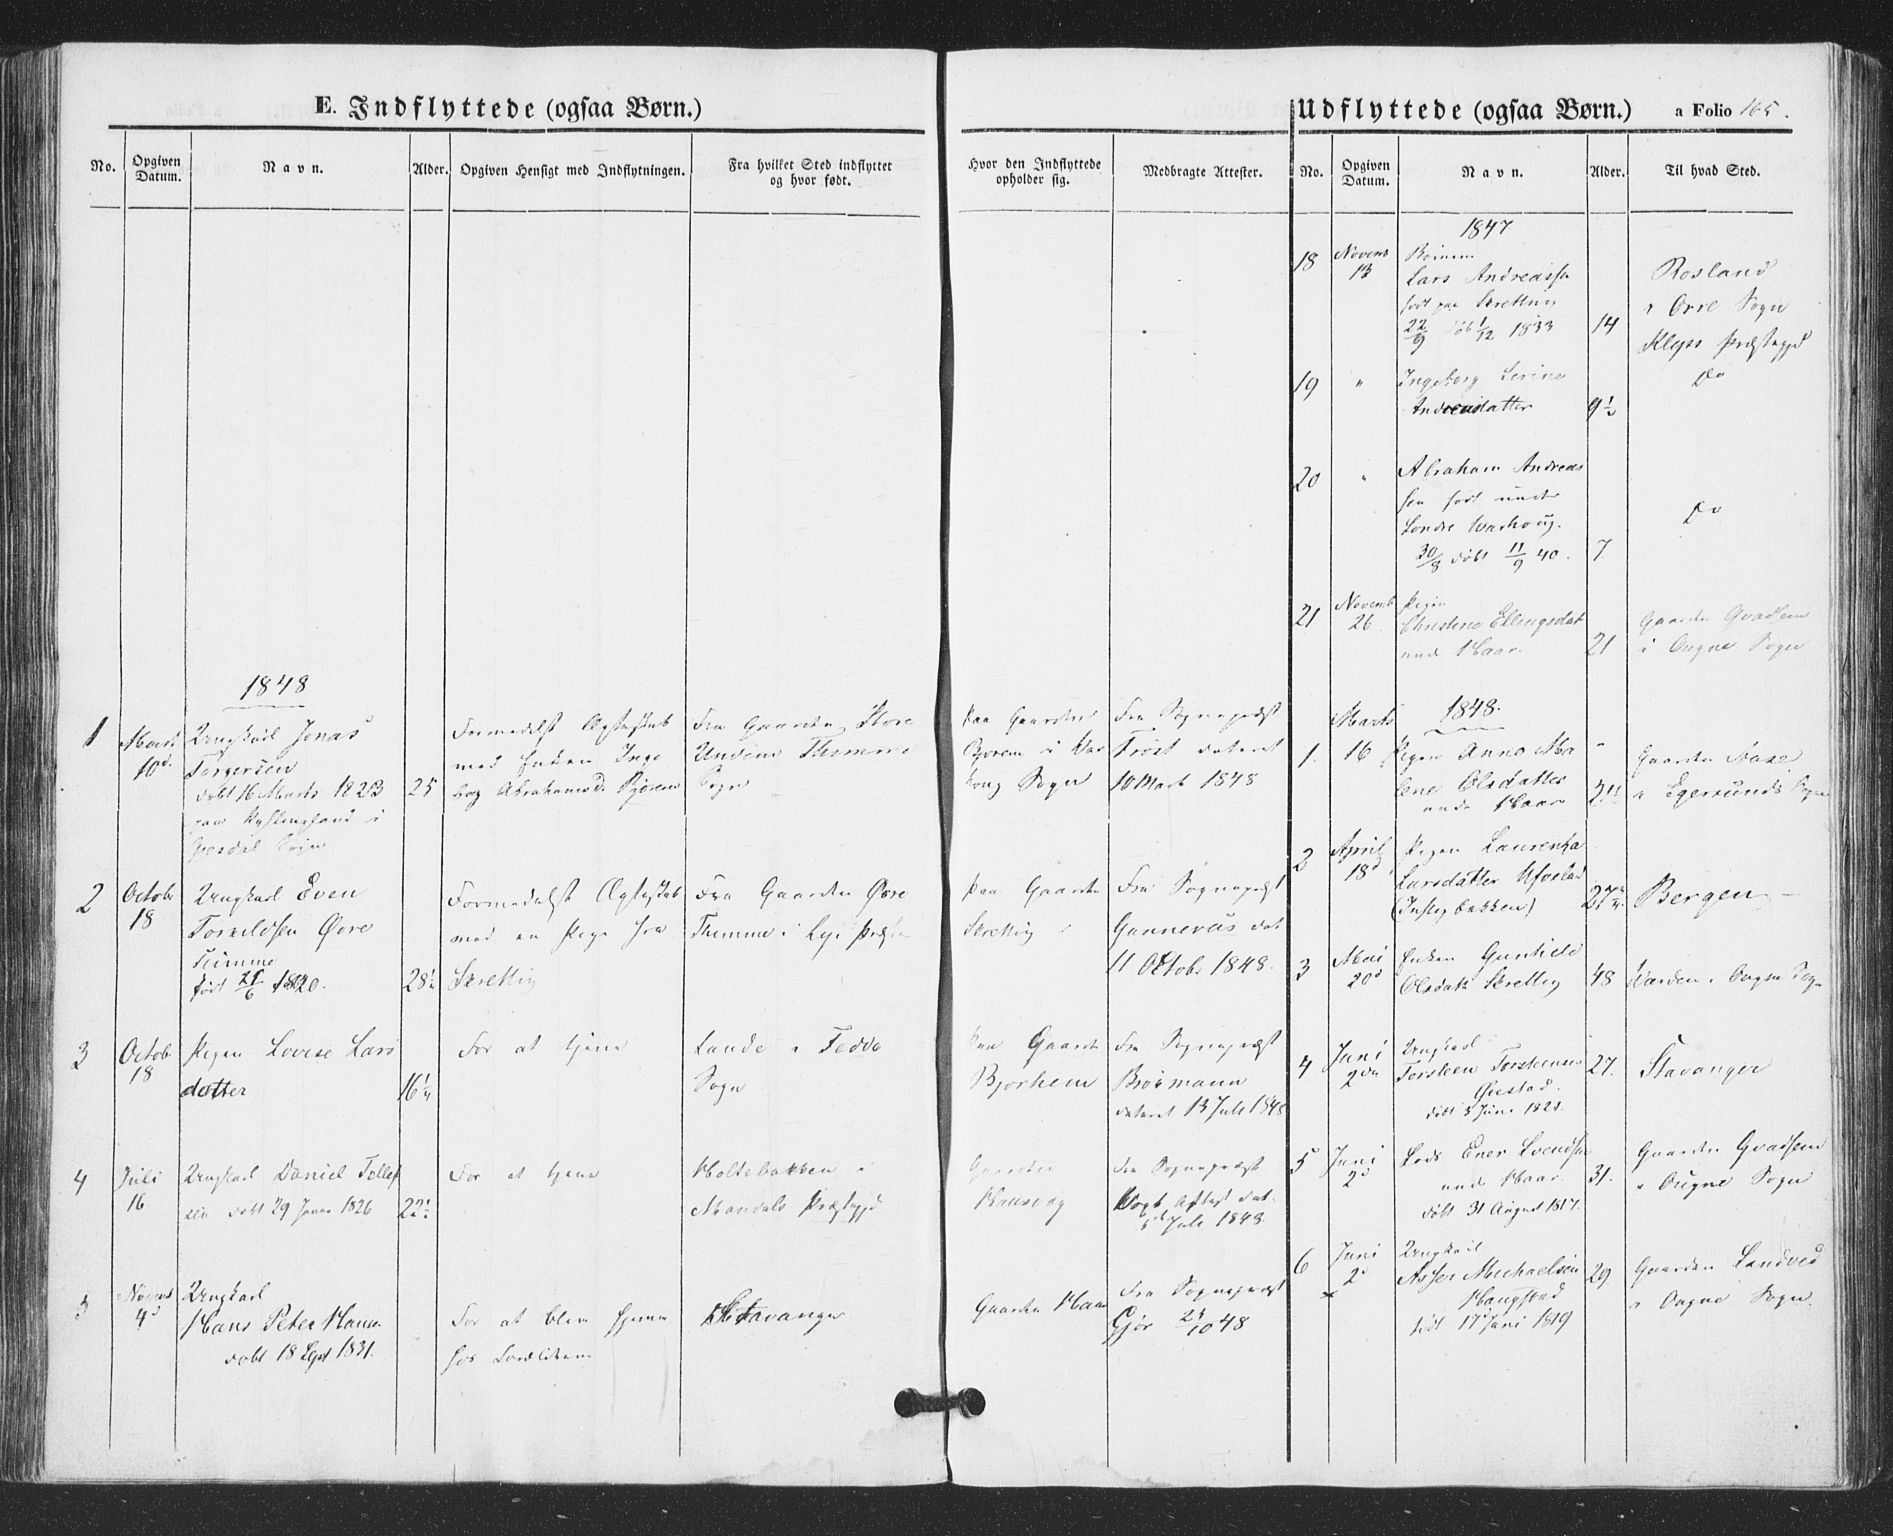 E. Indflyttede (ogsaa Børn.)
No.
Opgiven Datum.
Navn.
Alder.
Opgiven Hensigt med Indflytningen.
Fra hvilket Sted indflyttet og hvor født.
Hvor den Indflyttede opholder sig.
Medbragte Attester.
1848
1
Marts 10d.
Ungkarl Jonas
Torgersen
døbt 16 Marts 1823
paa
Sogn
25
Formedelst Ægteskab
med Enken Inge
borg Abrahamsd.
Fra Gaarden Store
Undem Thimme
Sogn
Paa Gaarden
i Var
houg Sogn
Fra Sognepræst
Trost dateret
10 Mart 1848
2
Octobr 18
Ungkarl Even
Torkildsen Øvre
Thimme
født 21/6 1820.
28½
Formedelst Ægteskab
med en Pige fra
Skretting
Fra Gaarden Øvre
Thimme i Lye Præste
Paa Gaarden
Skretting
Fra Sognepræst
dat
11 Octobr 1848.
3
Octob 18
Pigen Lovise Lars
datter
16¼
For at tjene
Lande i Fedde
Sogn
Paa Gaarden
Bjorhem
Fra Sognepræst
dateret 13 Juli 1848
4
Juli 16
Ungkarl Daniel Tollef
sen døbt 29 Januar 1826
22½
For at tjene
Holtebakken i
Mandals Præstegjd
Gaarden
Fra Sognepræst
Vogt Attest dat.
5d Juli 1848.
5
Novemb 4d
Ungkarl
Hans Peter Hansen
døbt 18 Sept 1831.
For at blive hjemme
hos
Stavanger
Gaarden Haar
Fra Sognepræst
Gjør 10 48
Udflyttede (ogsaa Børn.)
a Folio 165.
No.
Opgiven Datum.
Navn.
Alder.
Til hvad Sted.
1847
18
Novemb 13
Børnene
Lars Andreassen
født paa Skretting
22/9 døbt 1/12 1833
14
Rosland
i Orre Sogn
Kleps Præstegjd
19
"
Ingeborg Serine
Andreasdatter
9½
Do
20
"
Abraham Andreas
sen født under
Søndre Varhoug.
30/8 døbt 11/9 40.
7
Do
21
Novemb 26
Pigen
Christine Ellingsdat
und Haar.
21
Gaarden Qvadsem
i Ougne Sogn
1848.
1.
Marts 16
Pigen Anna Ma
lene Olsdatter
under Haar
Gaarden
i Egersunds Sogn
2
April 18d
Pigen Laurentza
Larsdatter
27
Bergen
3
Mai 20d
Enken Gunhild
Olsdatr Skretting
48
i Ougne Sogn
4
Juni 2den
Ungkarl
Torsteen Torsteensen
døbt 3 Juni 1821.
27.
Stavanger
5
Juni 2d
Ener Svendsen
und Haar.
døbt 31 August 1817.
31.
Gaarden Qvadsem
i Ougne Sogn
6
Juni 2d
Ungkarl
Asser Michaelsen
Haugstad
født 17 Juni 1819
29
Gaarden
i Ougne Sogn.